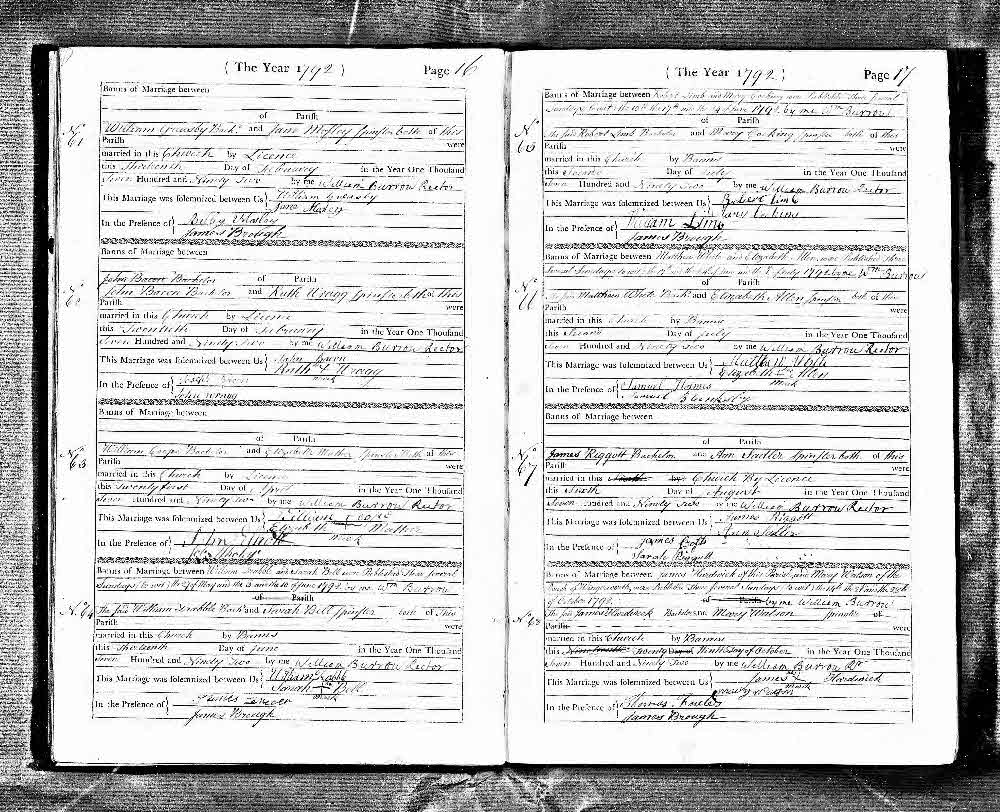 ( The Year 1792 )
Page 16
Banns of Marriage between
of Parish
No 61
William Greasby Bachr and Jane Mosley Spinster both of this
Parish were
married in this Church by Licence
this Thirteenth Day of February in the Year One Thousand
Seven Hundred and Ninety Two by me William Burrow Rector
This Marriage was solemnized between Us William Greasby
Jane Mosley
In the Presence of Mosley
James Brough
Banns of Marriage between
John Bacon Bachelor of Parish
No 62
John Bacon Bachelor and Ruth Wragg Spinster both of this
Parish were
married in this Church by Licence
this Twentieth Day of February in the Year One Thousand
Seven Hundred and Ninety Two by me William Burrow Rector
This Marriage was solemnized between Us John Bacon
Ruth + Wragg
mark
In the Presence of Joseph Bacon
John Wragg
Banns of Marriage between
of Parish
No 63
William Bachelor and Elizabeth Mather Spinster both of this
Parish were
married in this Church by Licence
this Twenty first Day of April in the Year One Thousand
Seven Hundred and Ninety Two by me William Burrow Rector
This Marriage was solemnized between Us William
Elizabeth Mather
mark
In the Presence of John
Banns of Marriage between William and Sarah Bell were Published three several
Sundays to wit the 27 of May and the 3 and the 10 of June 1792 by me Wm Burrow
of Parish
No 64
The said William Bachr and Sarah Bell Spinster both of this
Parish were
married in this Church by Banns
this Thirteenth Day of June in the Year One Thousand
Seven Hundred and Ninety Two by me William Burrow Rector
This Marriage was solemnized between Us William
Sarah + Bell
mark
In the Presence of James
James Brough
( The Year 1792 )
Page 17
Banns of Marriage between Robert Limb and Mary Cocking were Published three several
Sundays to wit the 10th the 17th and the 24 of June 1792 by me Wm Burrow
of Parish
No 65
The said Robert Limb Bachelor and Mary Cocking Spinster both of this
Parish were
married in this Church by Banns
this Second Day of July in the Year One Thousand
Seven Hundred and Ninety Two by me William Burrow Rector
This Marriage was solemnized between Us Robert Limb
Mary
In the Presence of William Limb
James Brough
Banns of Marriage between Matthew White and Elizabeth Allen were Published three
several Sundays to wit the 17 and the July 1792 by me Wm Burrow
of Parish
No 66
The said Matthew White Bachr and Elizabeth Allen Spinster both of this
Parish were
married in this Church by Banns
this Second Day of July in the Year One Thousand
Seven Hundred and Ninety Two by me William Burrow Rector
This Marriage was solemnized between Us
Elizabeth Allen
mark
In the Presence of Samuel
Samuel
Banns of Marriage between
of Parish
No 67
James Riggott Bachelor and Ann Sadler Spinster both of this
Parish were
married in this by Church By Licence
this Sixth Day of August in the Year One Thousand
Seven Hundred and Ninety Two by me William Burrow Rector
This Marriage was solemnized between Us James Riggott
Ann Sadler
In the Presence of James
Sarah
Banns of Marriage between James Hardwick of this Parish and Mary Watson of the
Parish of Wingerworth were Published three several Sundays to wit the 14th the 21 and the 28th
of October 1792 of Parish by me William Burrow
No 68
The said James Hardwick Bachelor and Mary Watson Spinster of
Parish were
married in this Church by Banns
this Twenty Ninth Day of October in the Year One Thousand
Seven Hundred and Ninety Two by me William Burrow Rr
This Marriage was solemnized between Us James Hardwick
mark
Mary Watson
In the Presence of Thomas
James Brough